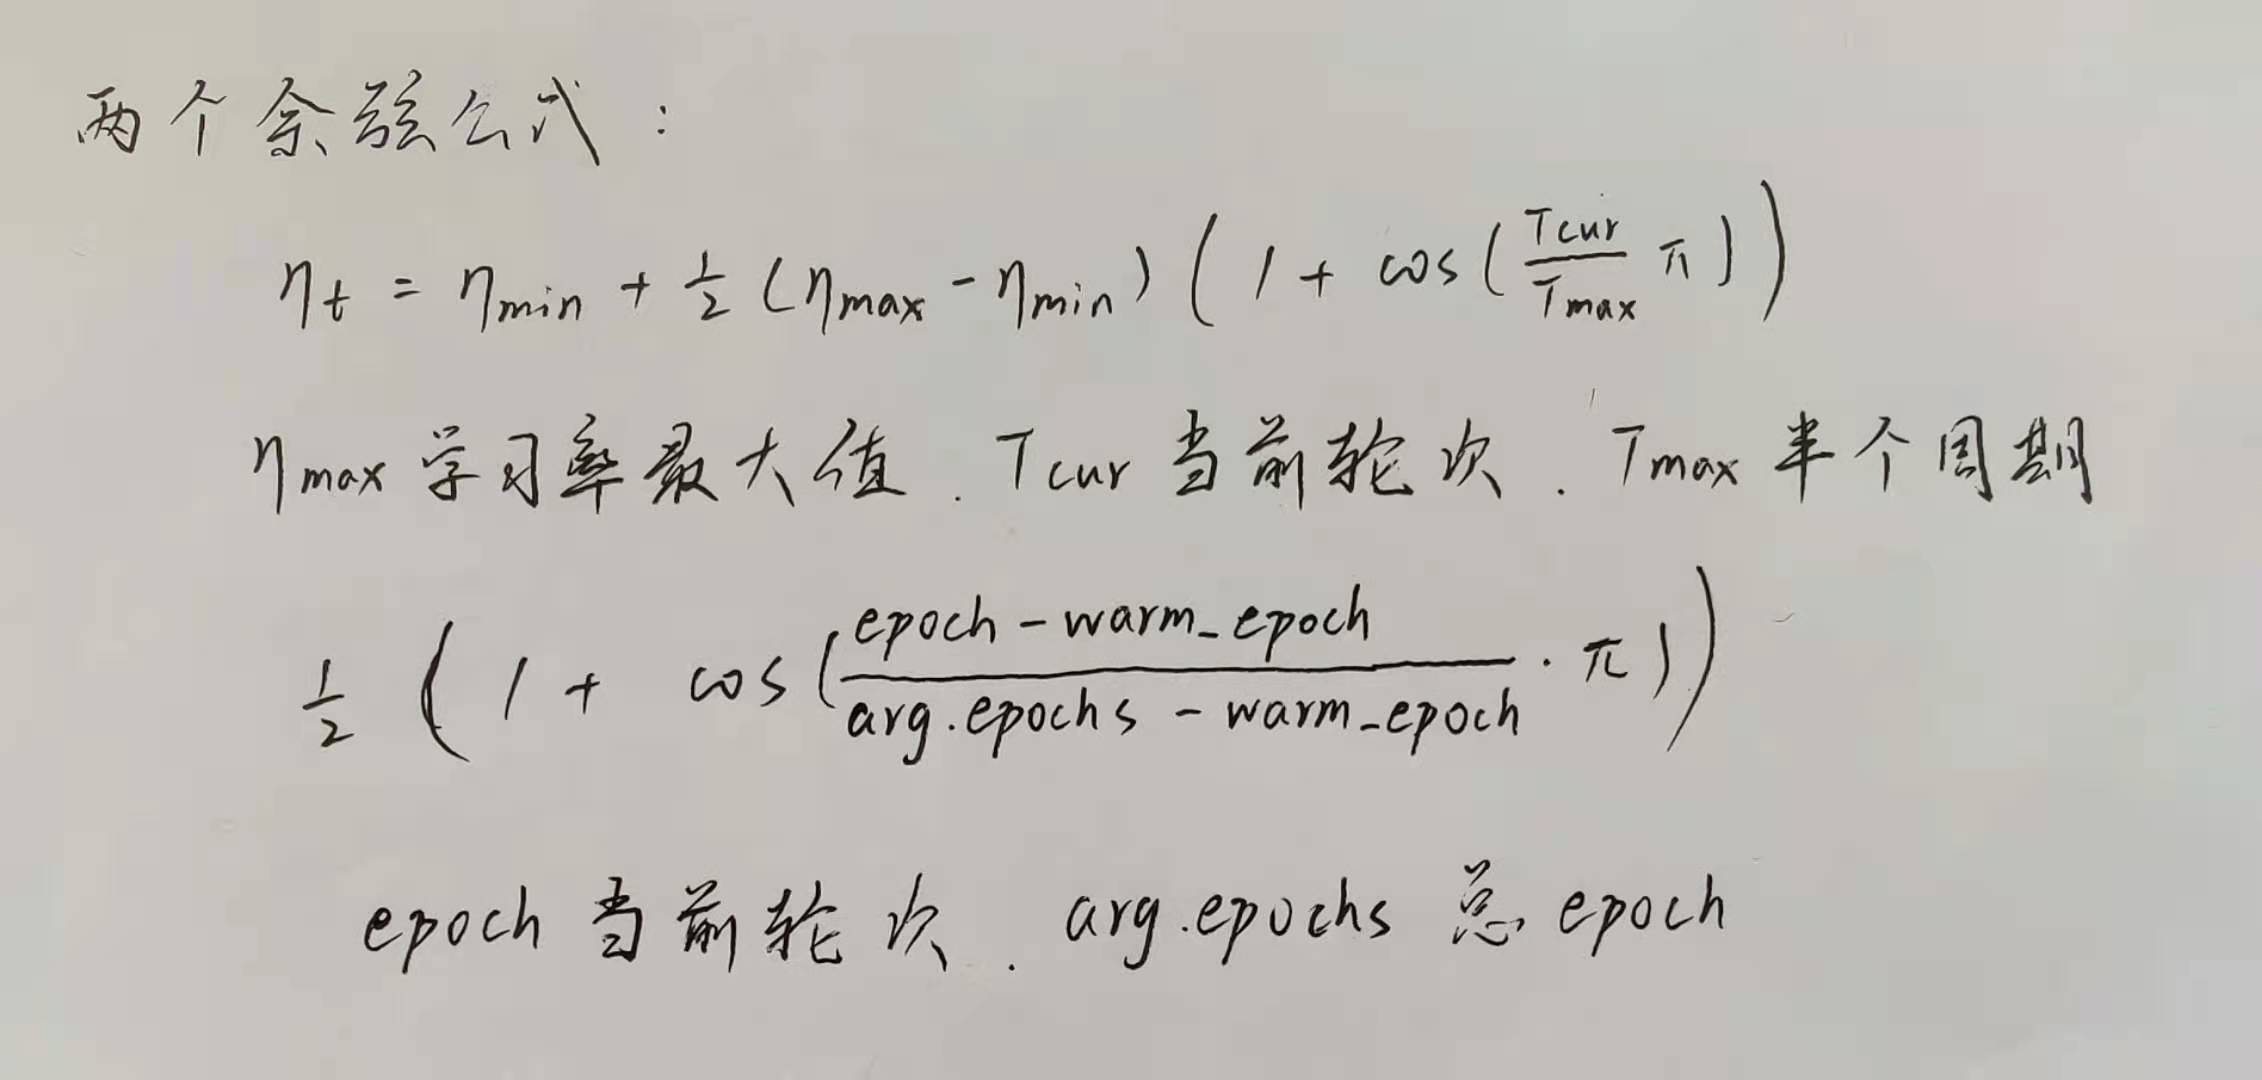 两个余弦公式：
η_t = η_min + 1/2 (η_max - η_min) ( 1 + cos( T_cur/T_max π ) )
η_max 学习率最大值 . T_cur 当前轮次 . T_max 半个周期
1/2 ( 1 + cos( (epoch - warm_epoch)/(arg.epochs - warm_epoch) · π ) )
epoch 当前轮次 . arg.epochs 总 epoch